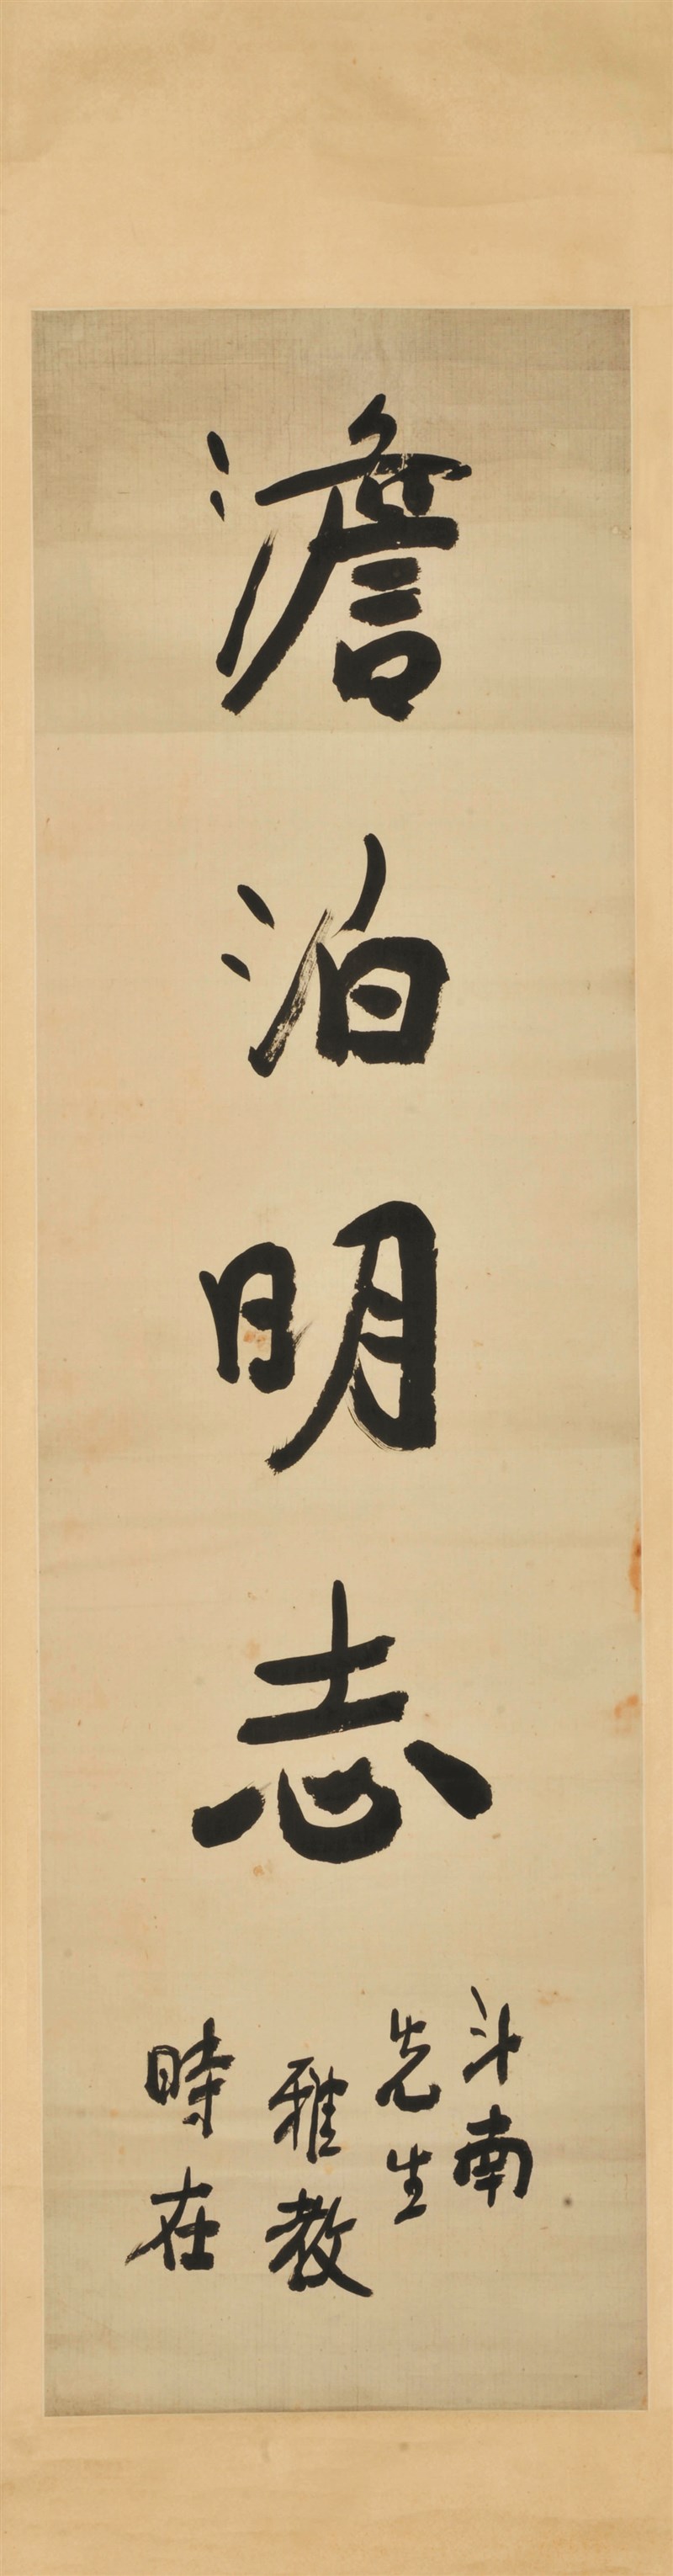 澹泊明志
斗南
先生
雅教
時在